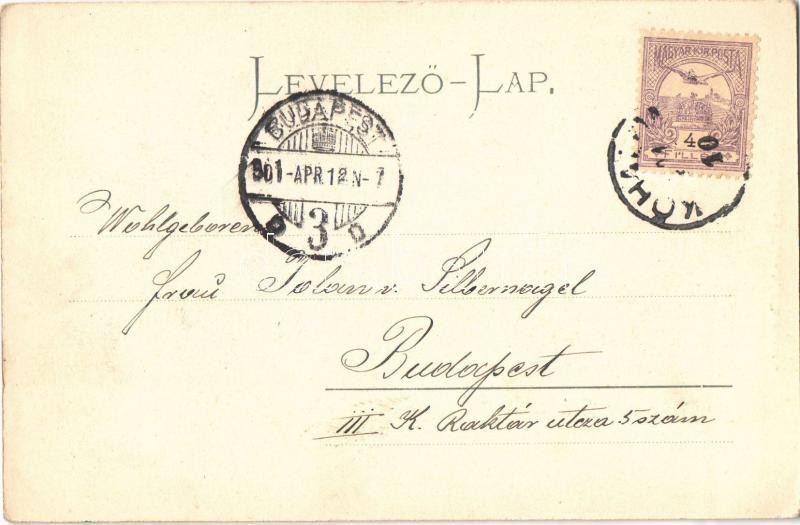 LEVELEZŐ-LAP.
MAGYAR KIR. POSTA
4
BUDAPEST
901-APR.12 N-7
3
10
Wohlgeboren
Frau Jolan v. Silbernagel
Budapest
III K. Raktár utcza 5 szám